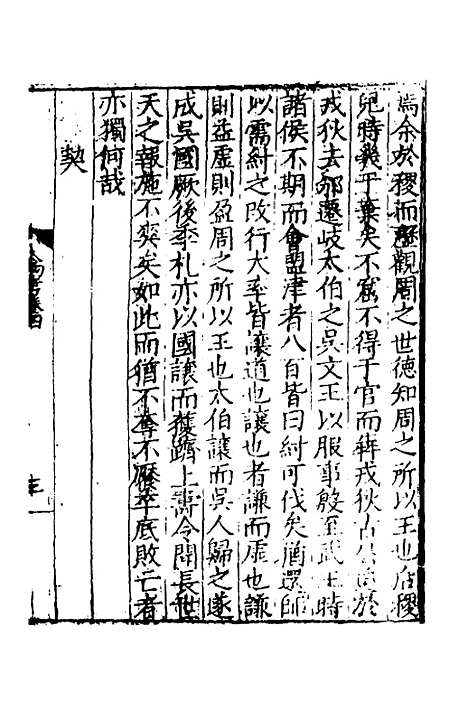 焉余於稷而歷觀周之世德知周之所以王也后稷
兒時幾于棄矣不窋不得于官而犇戎狄古公逼於
戎狄去邠遷岐太伯之吳文王以服事殷至武王時
諸侯不期而會盟津者八百皆曰紂可伐矣猶還師
以需紂之改行大率皆讓道也讓也者謙而虛也謙
則益虛則盈周之所以王也太伯讓而吳人歸之遂
成吳國厥後季札亦以國讓而獲躋上壽令聞長世
天之報施不爽矣如此而猶不奪不厭卒底敗亡者
亦獨何哉
契